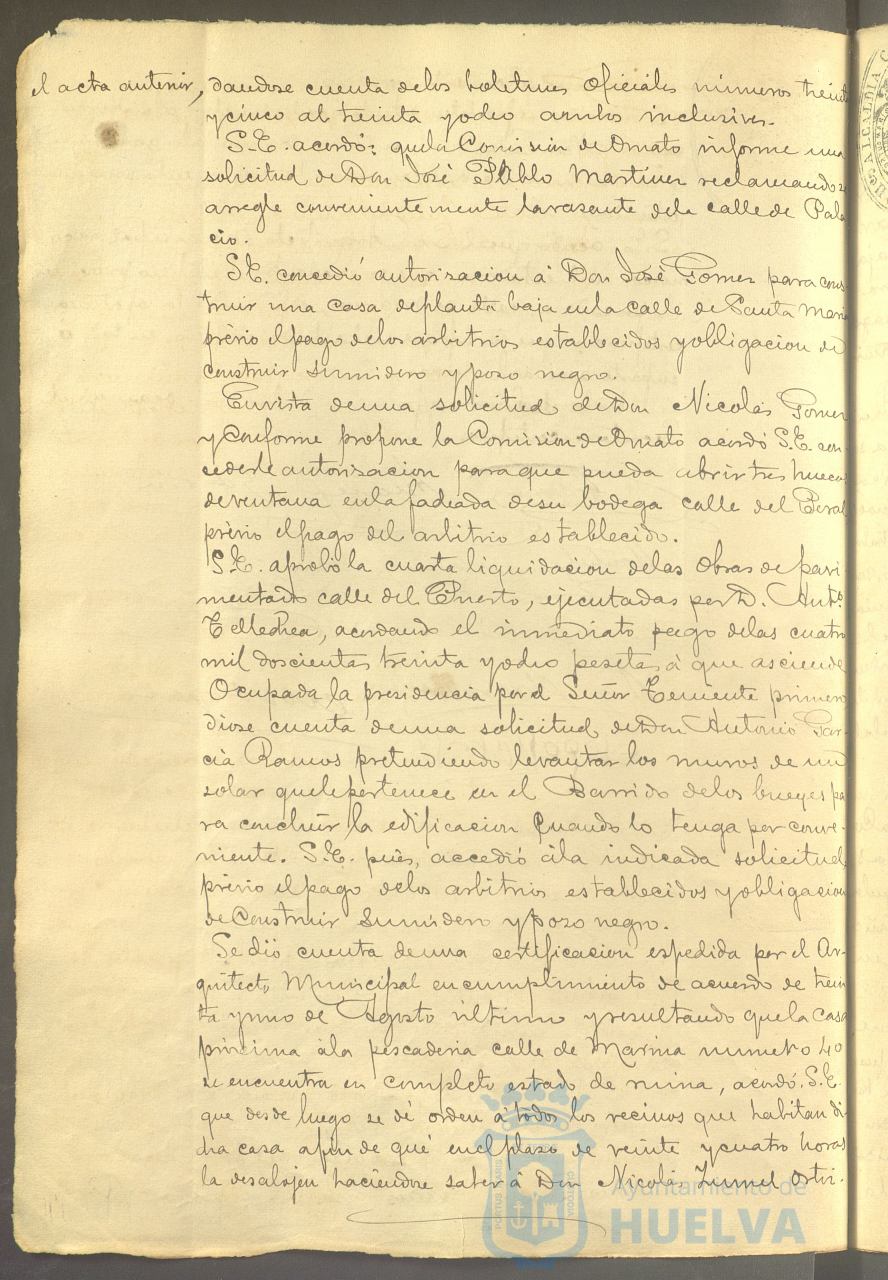 el acta anterior, dandose cuenta delos boletines oficiales números treint
y cinco al treinta yocho ambos inclusives.
S.E. acordó: quela Comision de Ornato informe una
solicitud de Don José Pablo Martinez reclamando se
arregle convenientemente larasante dela callede Pala
cio.
S.E. concedió autorizacion á Don José Gomez para cons
truir una casa deplanta baja enla calle de Santa Maria
prévio elpago delos arbitrios establecidos yobligacion de
construir sumidero ypozo negro.
Envista deuna solicitud de Don Nicolás Gomez
y conforme propone la Comision de Ornato acordó S.E. con
cederle autorizacion paraque pueda abrir tres huecos
deventana enla fachada desu bodega calle del Peral
prévio elpago del arbitrio establecido.
S.E. aprobó la cuarta liquidacion delas obras de pavi-
mentado calle del Puerto, ejecutadas por D. Antº.
Tellechea, acordando el inmediato pago delas cuatro
mil doscientas treinta yocho pesetas á que asciende
Ocupada la presidencia porel Señor Teniente primero
dióse cuenta deuna solicitud de Don Antonio Gar-
cia Ramos pretendiendo levantar los muros de un
solar quelepertenece en el Barrido delos bueyes pa
ra concluir la edificacion quando lo tenga por conve-
niente. S.E. pués, accedió ála indicada solicitud,
prévio elpago delos arbitrios establecidos yobligacion
de construir sumidero ypozo negro.
Se dió cuenta deuna certificacion espedida por el Ar-
quitecto Municipal encumplimiento de acuerdo de trein
ta yuno de Agosto último yresultando quela casa
próxima ála pescaderia calle de Marina numero 40
se encuentra en completo estado de ruina, acordó S.E.
que desde luego se dé orden á todos los vecinos que habitan di
cha casa afin de qué enelplazo de veinte ycuatro horas
la desalojen haciendose saber á Don Nicolás Zumel Ortiz.
Ayuntamiento de
HUELVA
PORTUS MARIS
CUSTODIA
ALCALDIA C